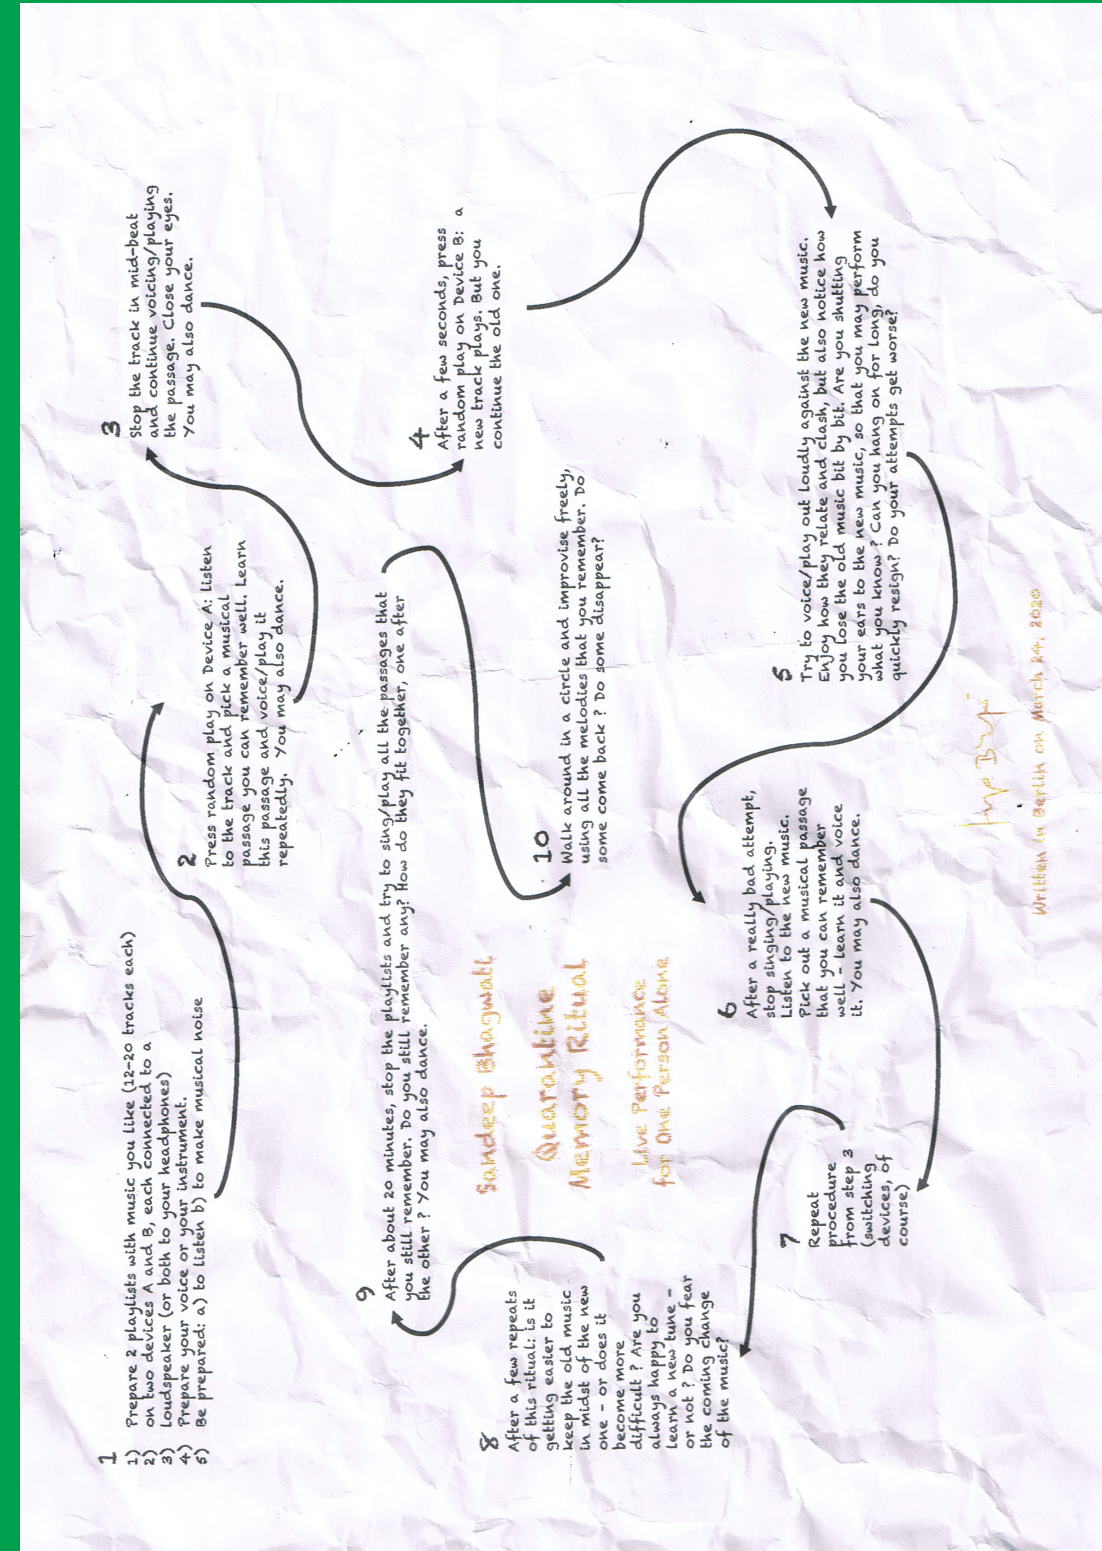 1
1) Prepare 2 playlists with music you like (12-20 tracks each)
2) on two devices A and B, each connected to a
3) Loudspeaker (or both to your headphones)
4) Prepare your voice or your instrument.
5) Be prepared: a) to listen b) to make musical noise
2
Press random play on Device A: listen
to the track and pick a musical
passage you can remember well. Learn
this passage and voice/play it
repeatedly. You may also dance.
3
Stop the track in mid-beat
and continue voicing/playing
the passage. Close your eyes.
You may also dance.
4
After a few seconds, press
random play on Device B: a
new track plays. But you
continue the old one.
5
Try to voice/play out loudly against the new music.
Enjoy how they relate and clash, but also notice how
you lose the old music bit by bit. Are you shutting
your ears to the new music, so that you may perform
what you know? Can you hang on for long, do you
quickly resign? Do your attempts get worse?
6
After a really bad attempt,
stop singing/playing.
Listen to the new music.
Pick out a musical passage
that you can remember
well - learn it and voice
it. You may also dance.
7
Repeat
procedure
from step 3
(switching
devices, of
course)
8
After a few repeats
of this ritual: is it
getting easier to
keep the old music
in midst of the new
one - or does it
become more
difficult? Are you
always happy to
learn a new tune -
or not? Do you fear
the coming change
of the music?
9
After about 20 minutes, stop the playlists and try to sing/play all the passages that
you still remember. Do you still remember any? How do they fit together, one after
the other? You may also dance.
10
Walk around in a circle and improvise freely,
using all the melodies that you remember. Do
some come back? Do some disappear?
Sandeep Bhagwati
Quarantine
Memory Ritual
Live Performance
for One Person Alone
Written in Berlin on March 24, 2020